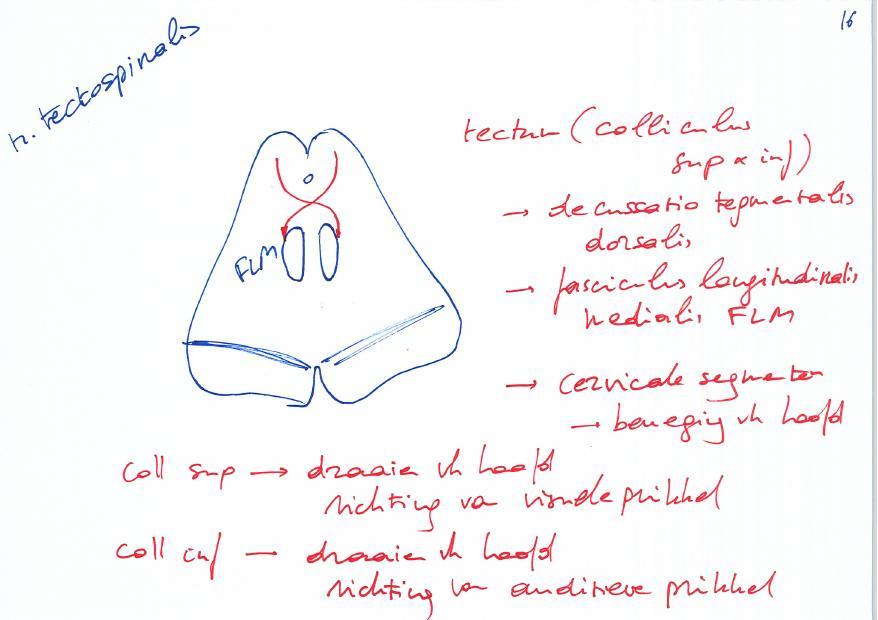 16
tr. tectospinalis
tectum (colliculus
sup & inf)
→ decussatio tegmentalis
dorsalis
FLM
→ fasciculus longitudinalis
medialis FLM
→ cervicale segmenten
→ beweging vh hoofd
coll sup → draaien vh hoofd
richting van visuele prikkel
coll inf → draaien vh hoofd
richting van auditieve prikkel